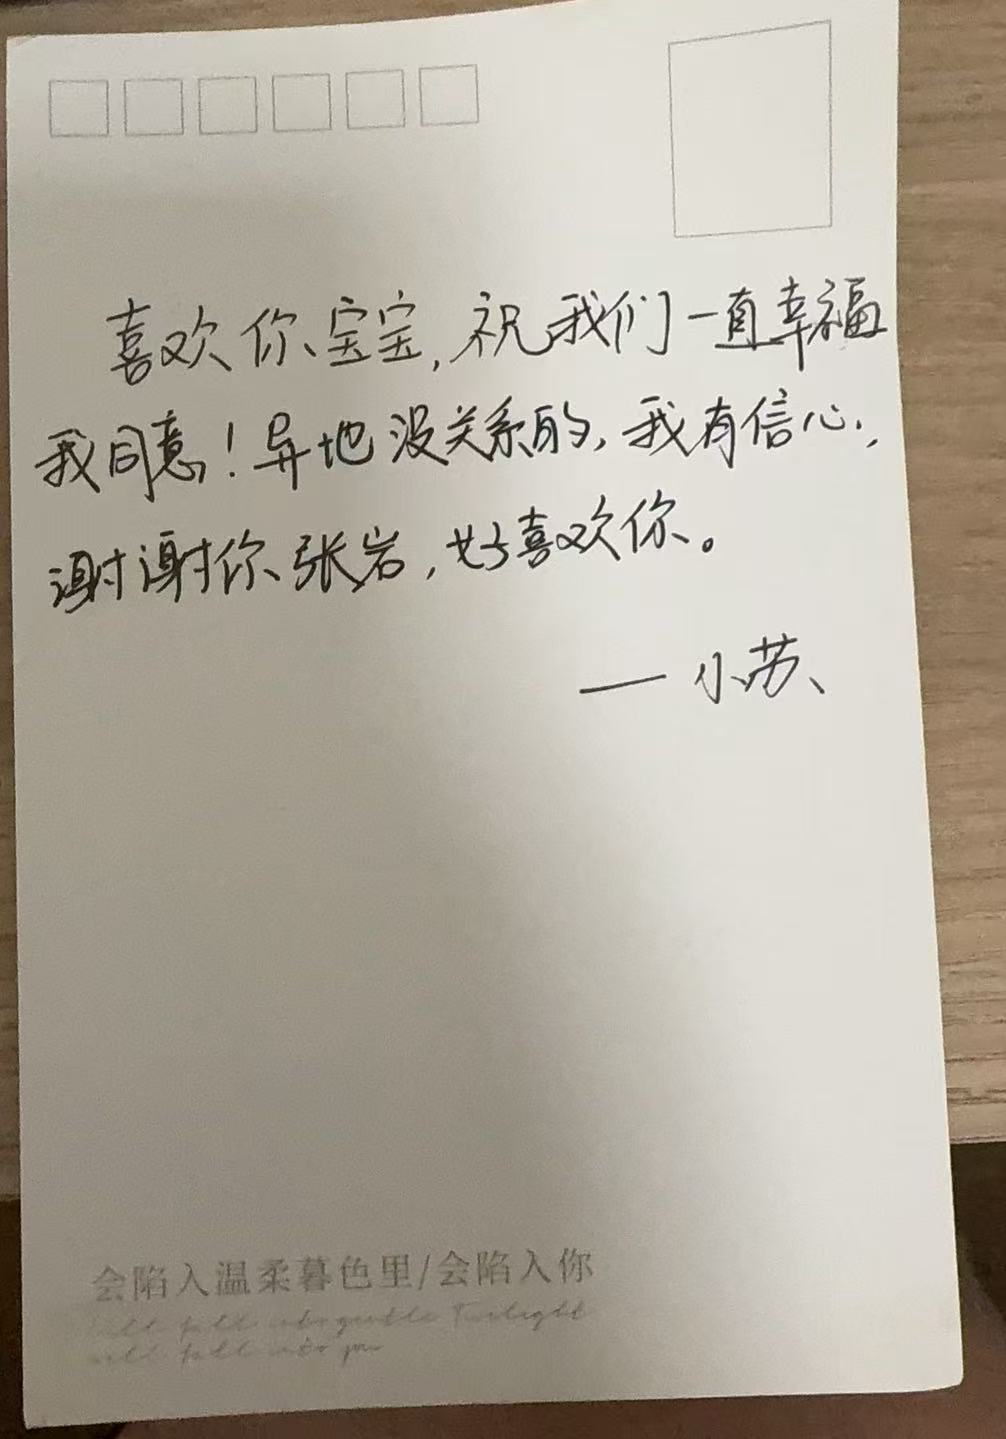 喜欢你宝宝，祝我们一直幸福
我同意！异地没关系的，我有信心，
谢谢你张岩，好喜欢你。
—— 小苏
会陷入温柔暮色里/会陷入你
will fall into gentle Twilight
will fall into you